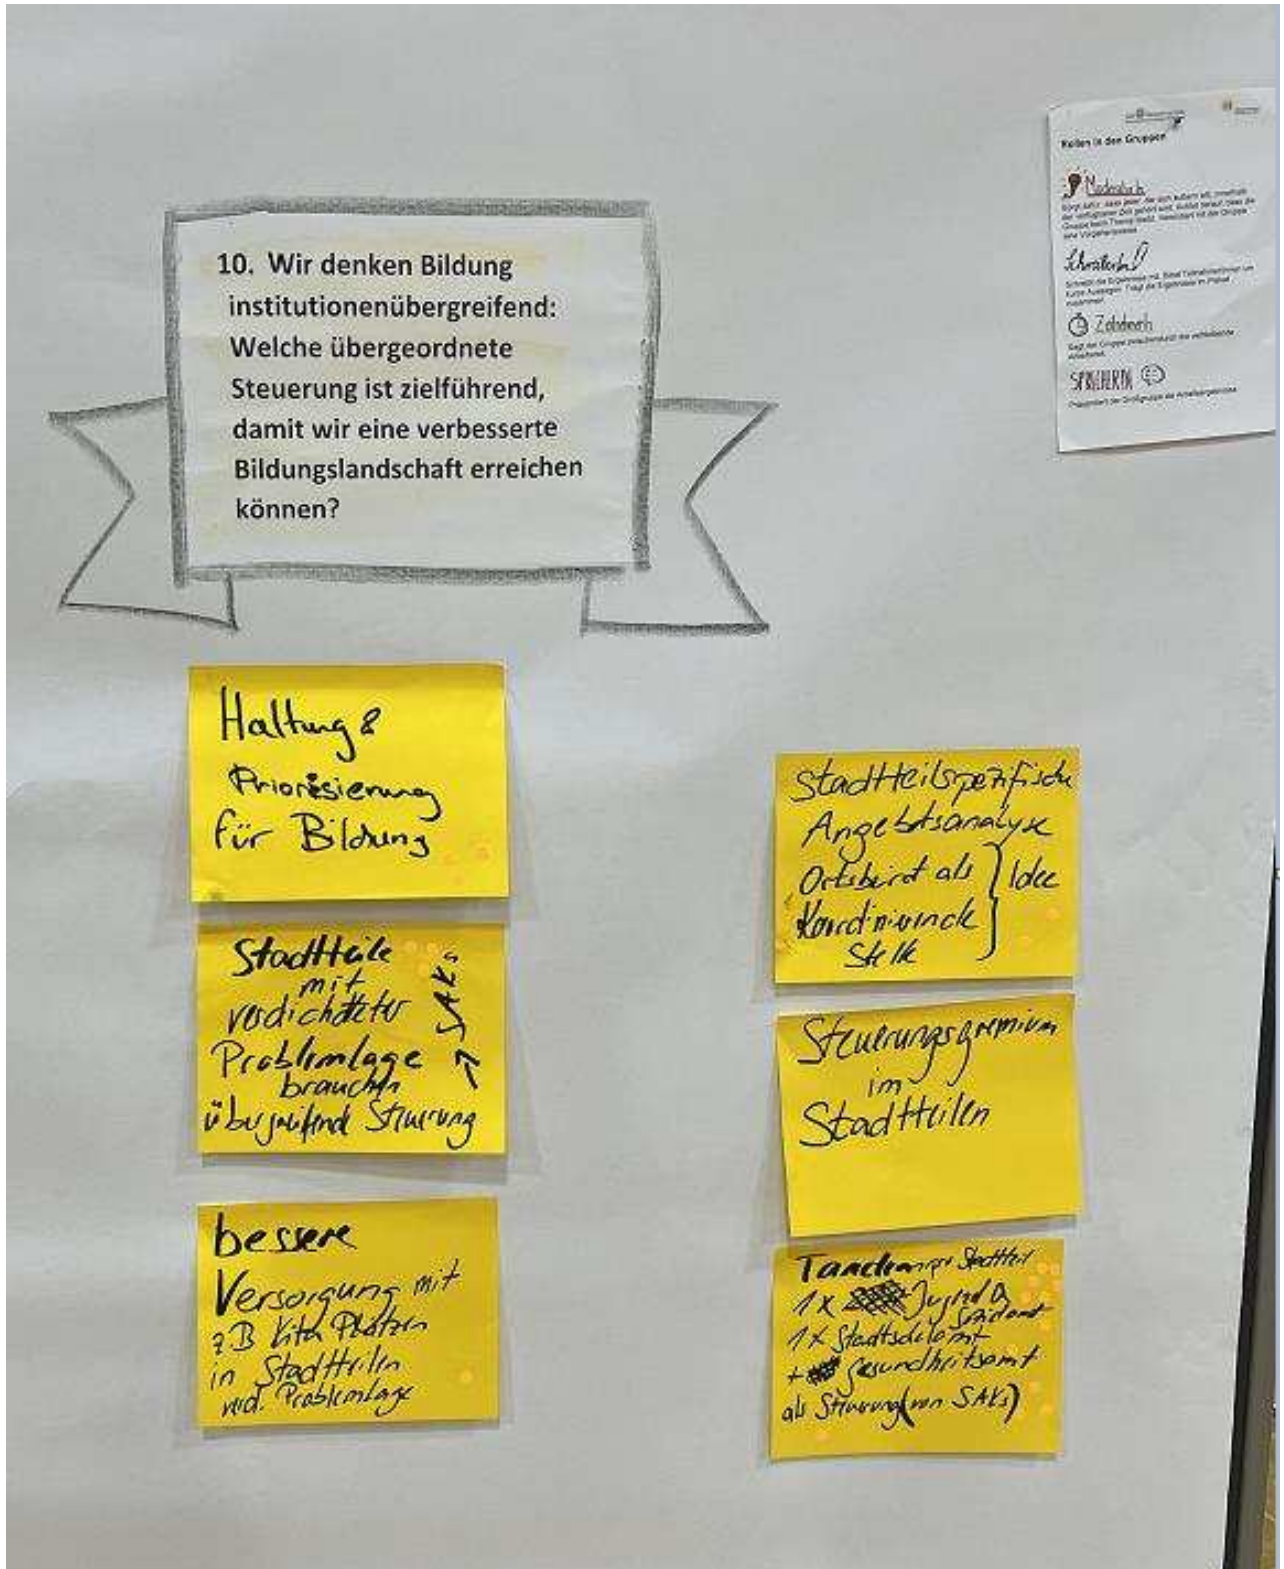 10. Wir denken Bildung
institutionenübergreifend:
Welche übergeordnete
Steuerung ist zielführend,
damit wir eine verbesserte
Bildungslandschaft erreichen
können?
Rollen in den Gruppen
Haltung &
Priorisierung
für Bildung
Stadtteile
mit
verdichteter
Problemlage
brauchen
übergreifende Steuerung
→ SAKs
bessere
Versorgung mit
z.B Kita Plätzen
in Stadtteilen
verd. Problemlage
Stadtteilspezifische
Angebotsanalyse
Ortsbeirat als
Koordinierende
Stelle
} Idee
Steuerungsgremium
im
Stadtteilen
Tandem pro Stadtteil
1x Jugend &
Sozialamt
1x Stadtschulamt
+ Gesundheitsamt
als Steuerung (von SAKs)